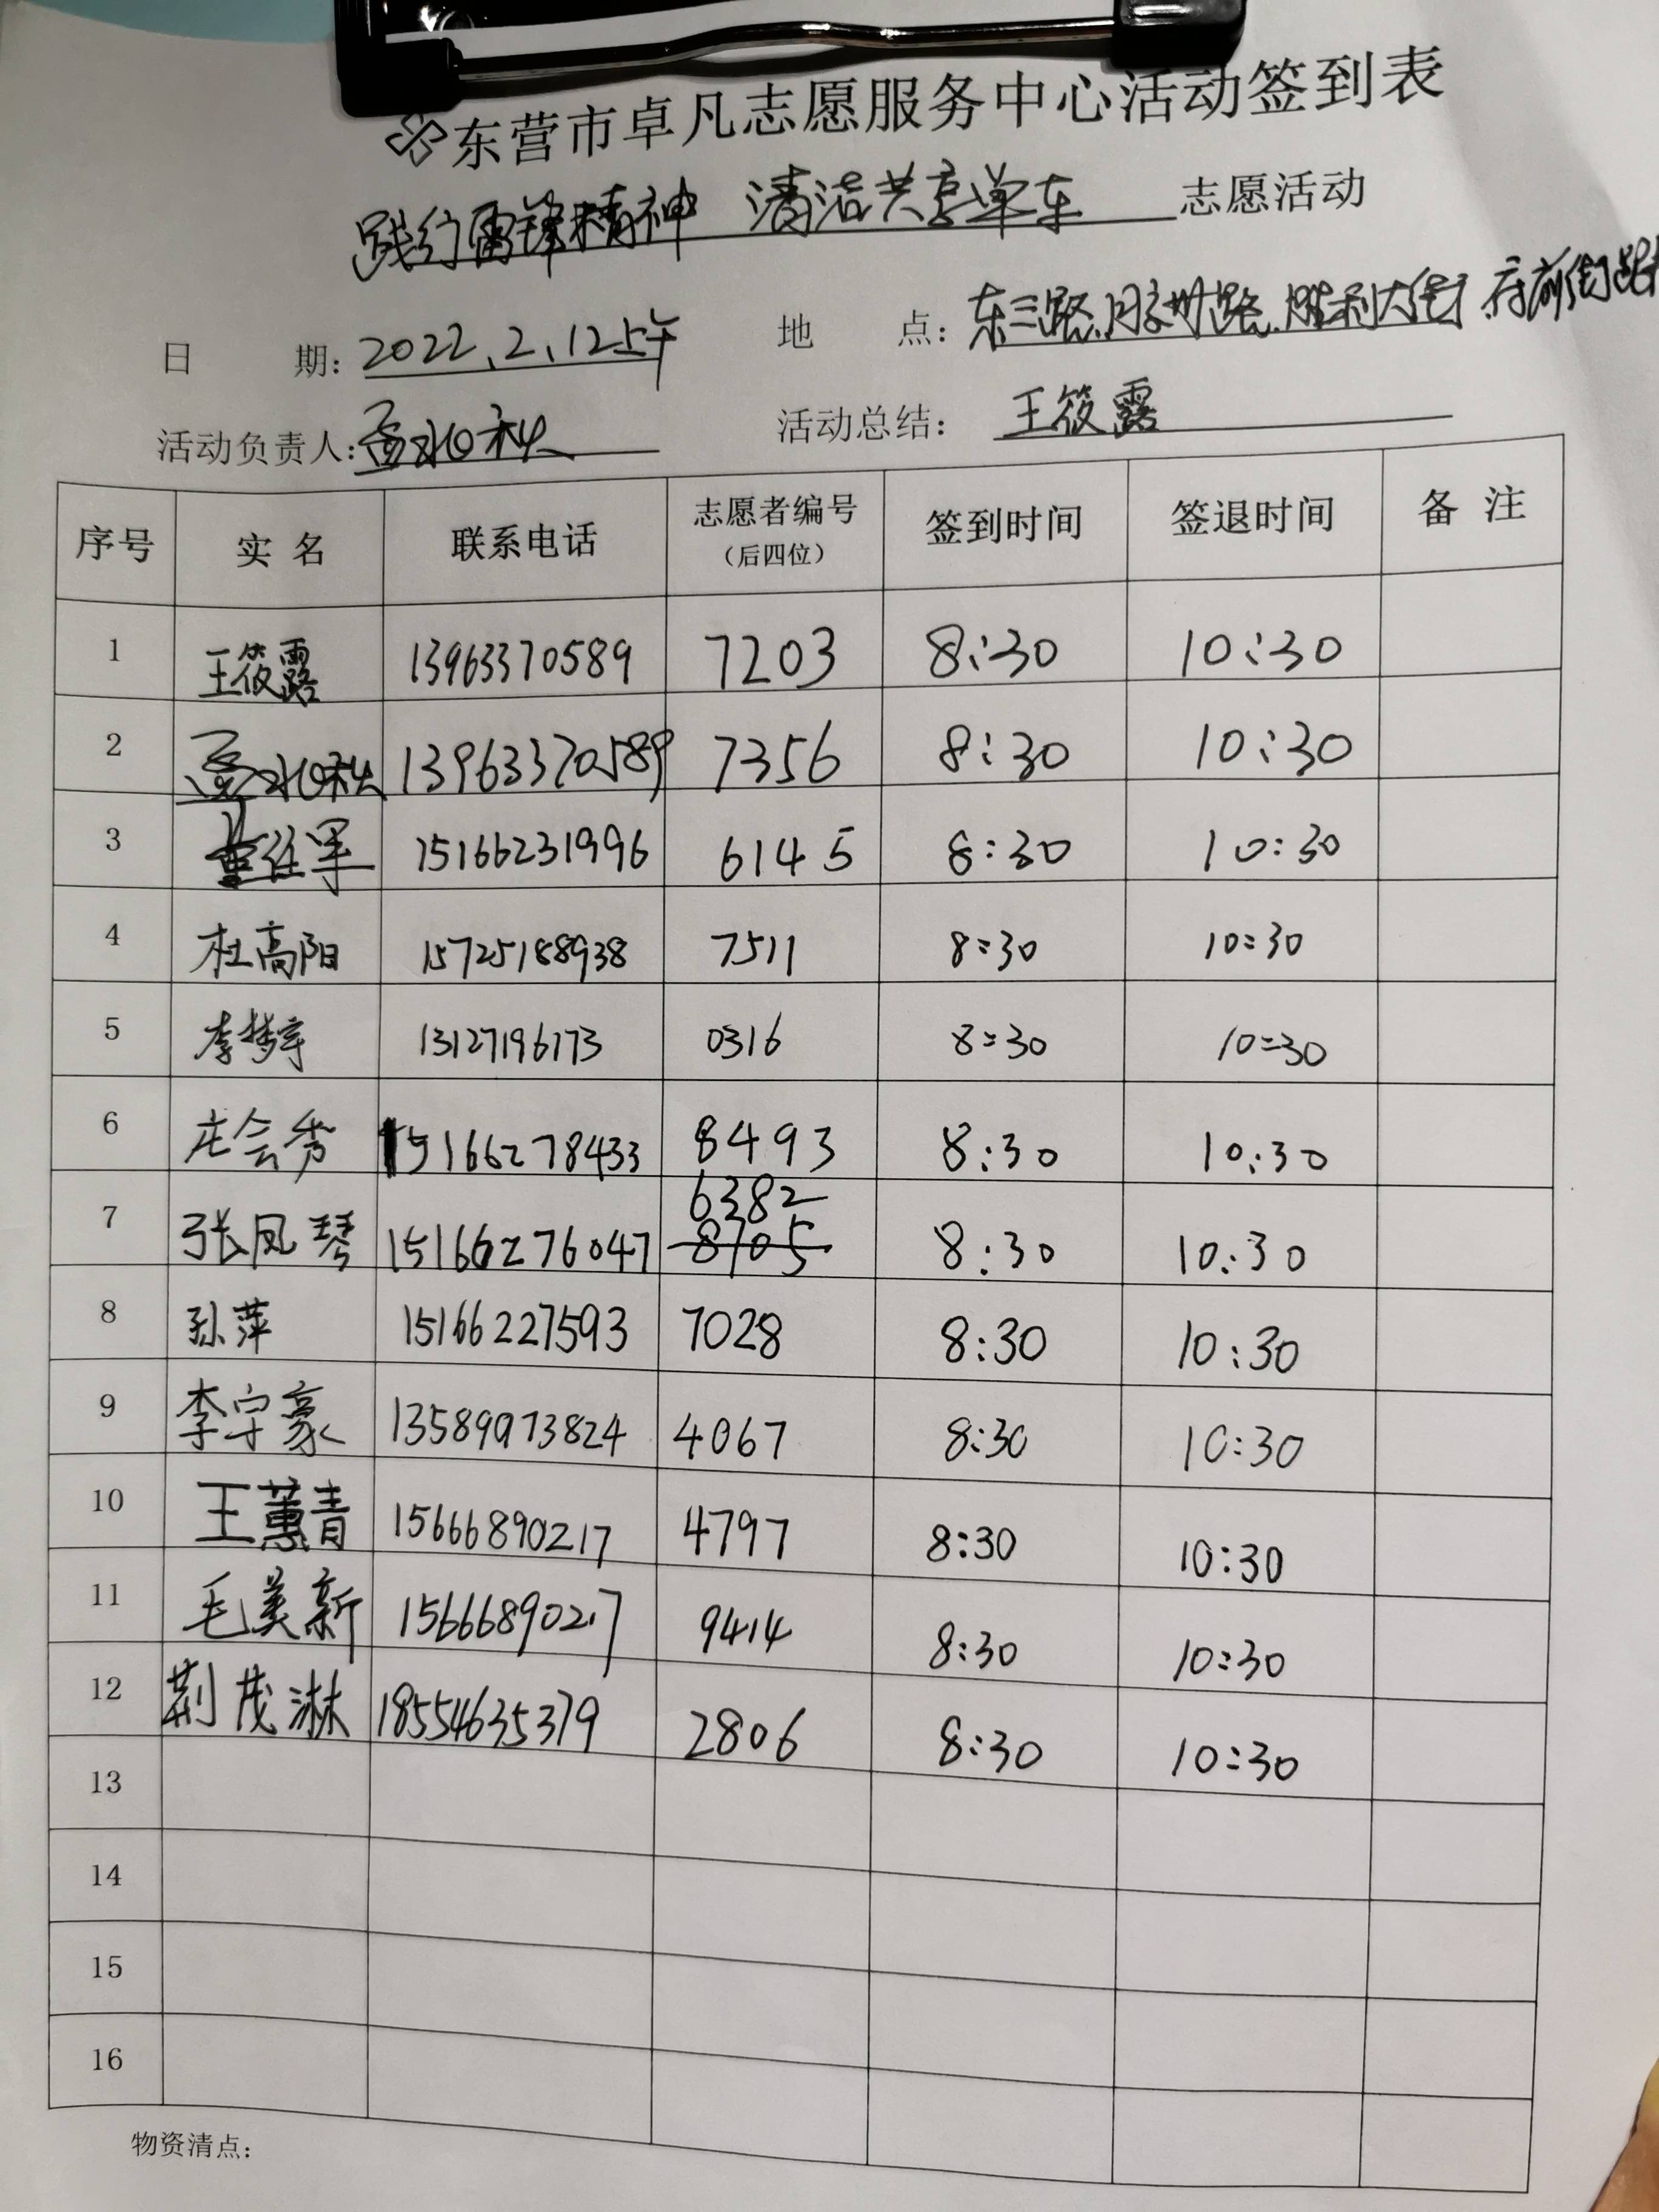 东营市卓凡志愿服务中心活动签到表
践行雷锋精神 清洁共享单车 志愿活动
日 期: 2022.2.12上午 地 点: 东三路、胶州路、胜利大街、府前街
活动负责人: 活动总结: 王筱露
序号 实名 联系电话 志愿者编号(后四位) 签到时间 签退时间 备注
1 王筱露 13963370589 7203 8:30 10:30
2 13963370589 7356 8:30 10:30
3 15166231996 6145 8:30 10:30
4 杜高阳 15725188938 7511 8:30 10:30
5 李梦宇 13127196173 0316 8:30 10:30
6 庄会秀 15166278433 8493 8:30 10:30
7 张凤琴 15166276047 6382 8705 8:30 10:30
8 孙萍 15166227593 7028 8:30 10:30
9 李宇豪 13589973824 4067 8:30 10:30
10 王蕙青 15666890217 4797 8:30 10:30
11 毛美新 15666890217 9414 8:30 10:30
12 荆茂淋 18554635379 2806 8:30 10:30
13
14
15
16
物资清点: